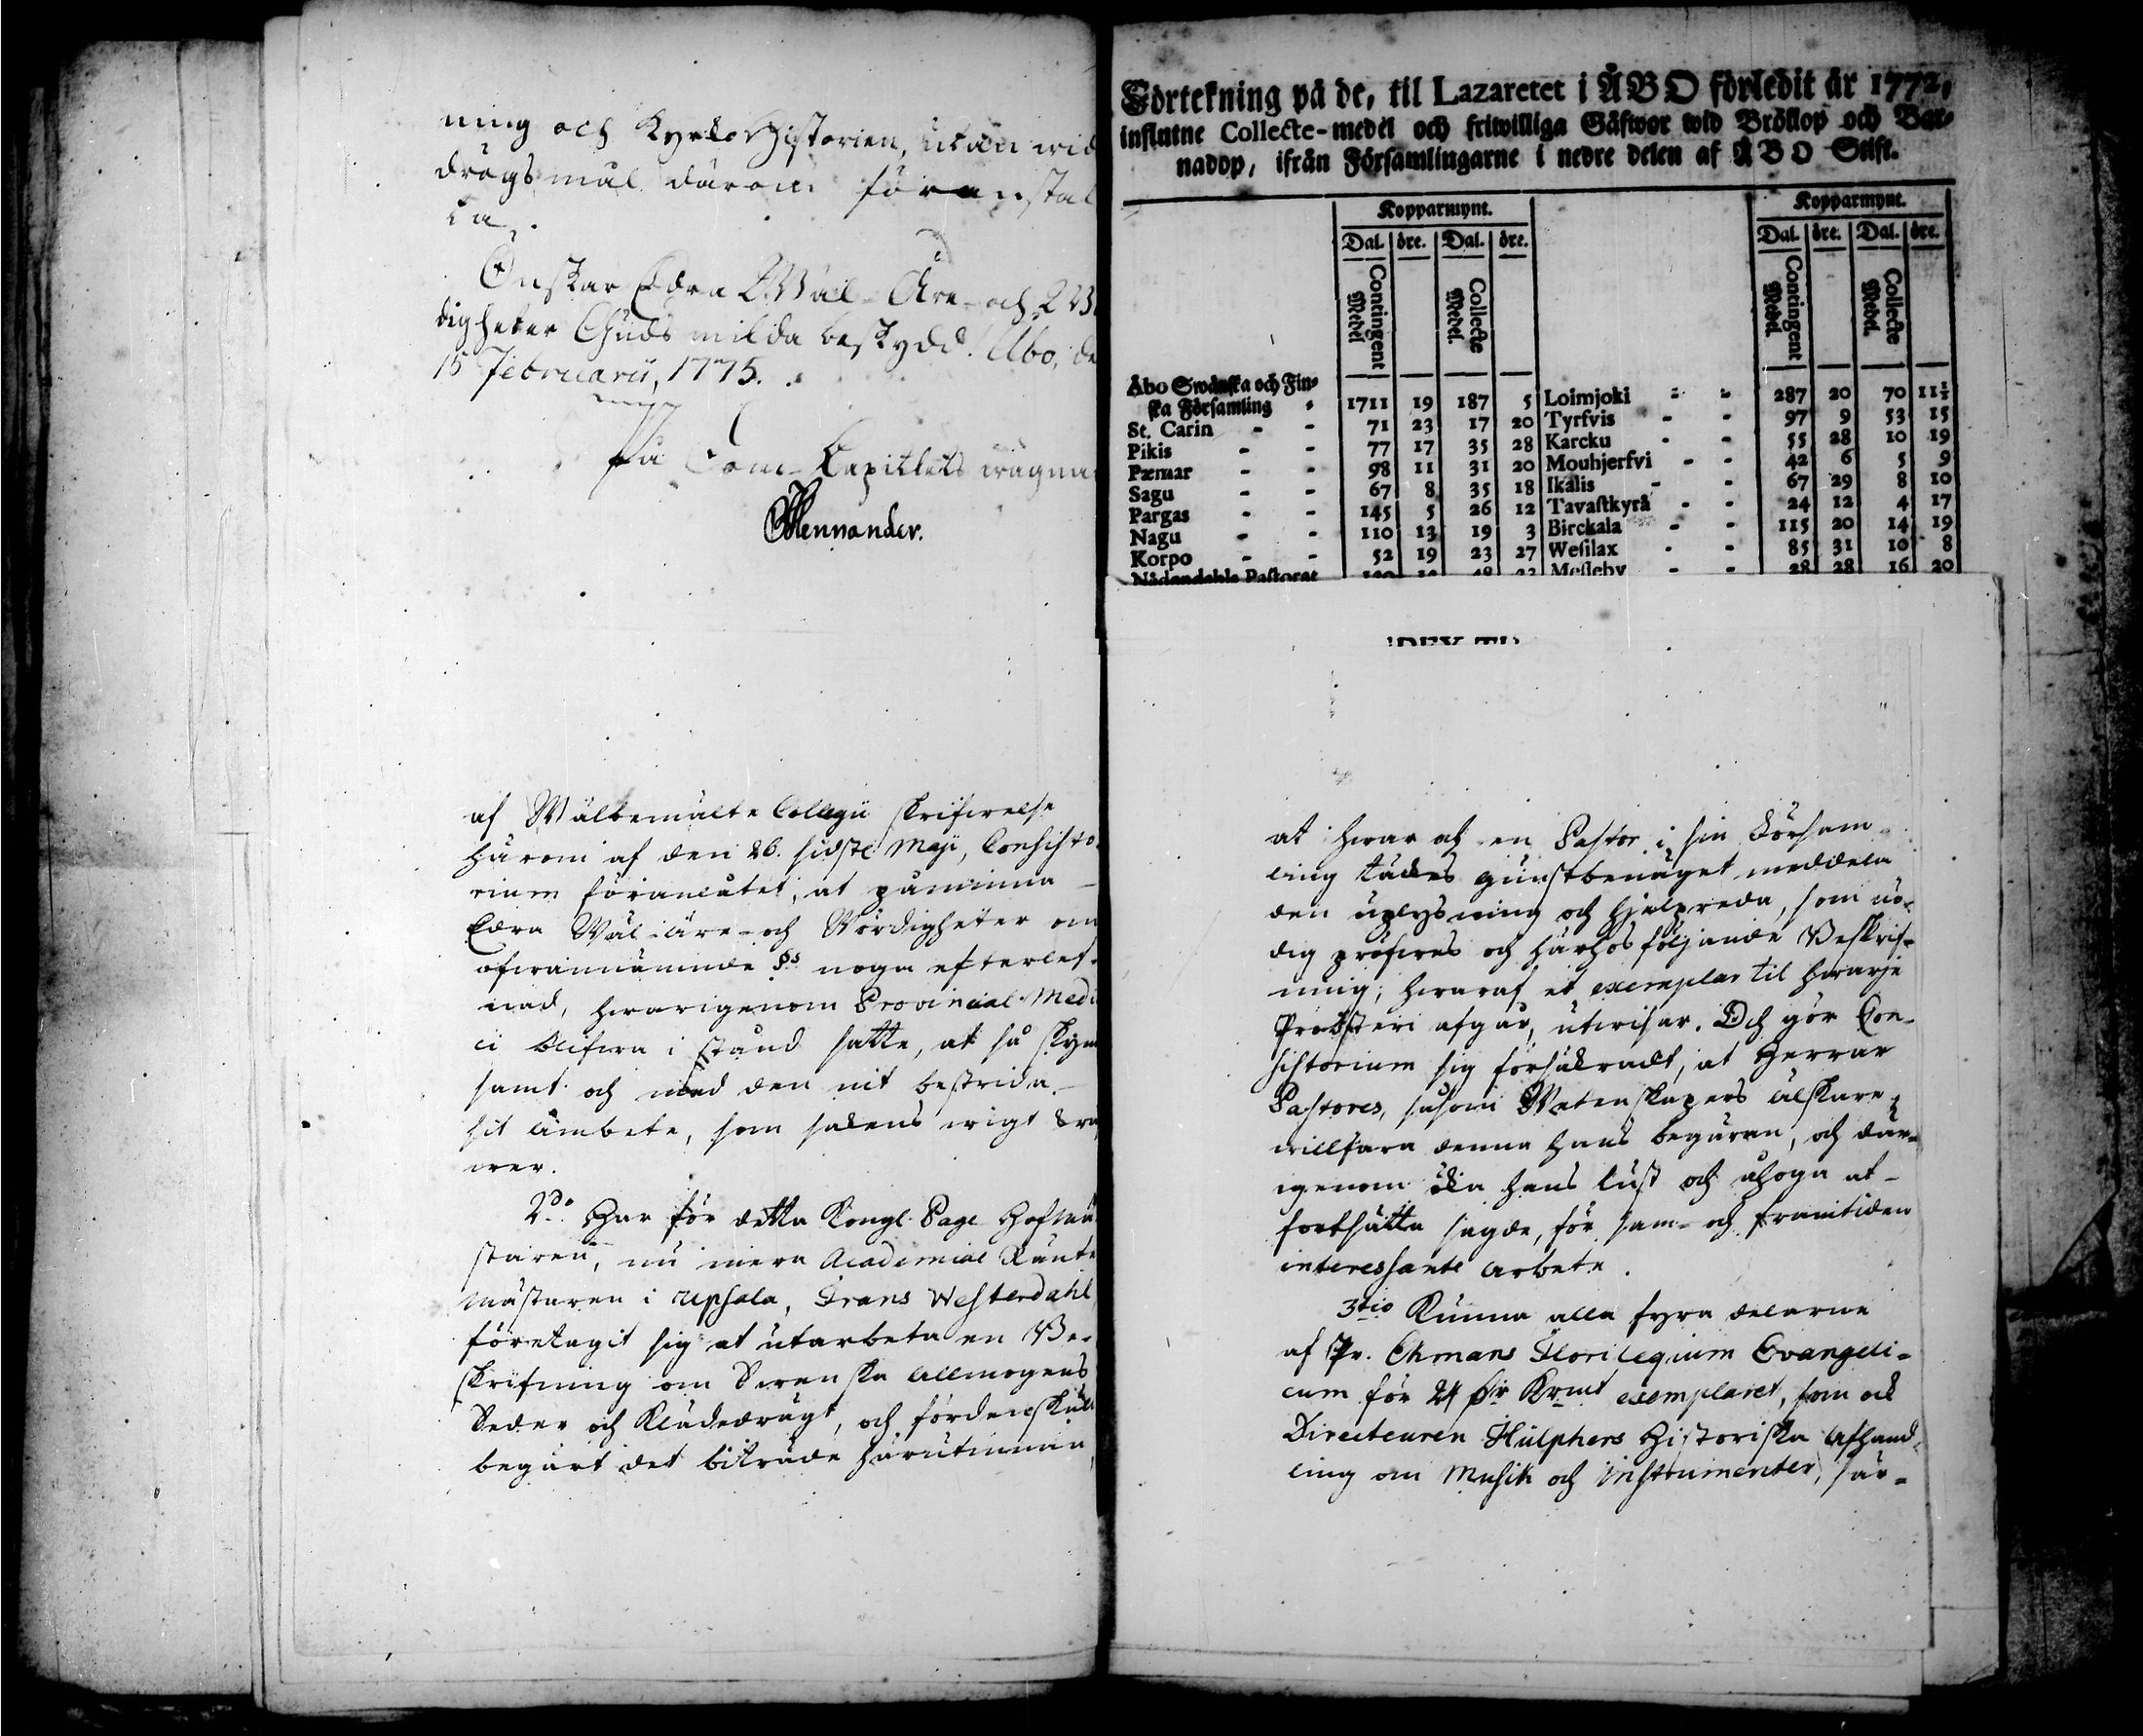 ning och Kyrko Historien, utan wid
drögsmål därom föranstal
ta.
Önskar Edra Wäl-Äre- och W
digheter Guds milda beskydd. Åbo, de
15 Februarii, 1775.
På Dom-Capitlets wägna
Mennander.
af Wälbemälte Collegii skrifwelse
härom af den 26. sidstl. Maji, Consisto-
rium föranlåtet, at påminna
Edra Wäl-äre- och Wördigheter om
ofwannämnde §s noga efterlef-
nad, hwarigenom Provincial-Medi
ci blifwa i stånd satte, at så skynd
samt och med den nit bestrida
sit ämbete, som sakens wigt kräf
wer.
2do. Har för detta Kongl. Page Hofmä
staren, nu mera Academiæ Ränte
mästaren i Upsala, Frans Westerdahl,
företagit sig at utarbeta en Be-
skrifning om Swenska Allmogens
Seder och Klädedrägt, och fördenskull
begärt det biträde härutinnan,
Förtekning på de, til Lazaretet i ÅBO förledit år 1772,
influtne Collecte-medel och friwilliga Gåfwor wid Bröllop och Bar-
nadop, ifrån Församlingarne i nedre delen af ÅBO Stift.
Kopparmynt. Kopparmynt.
Dal. öre. Dal. öre. Dal. öre. Dal. öre.
Contingent Medel Collecte Medel. Contingent Medel. Collecte Medel.
Åbo Swänska och Fin-
ska Församling - 1711 19 187 5 Loimjoki - - 287 20 70 11½
St. Carin - - 71 23 17 20 Tyrfvis - - 97 9 53 15
Pikis - - 77 17 35 28 Karcku - - 55 28 10 19
Pæmar - - 98 11 31 20 Mouhjerfvi - - 42 6 5 9
Sagu - - 67 8 35 18 Ikalis - - 67 29 8 10
Pargas - - 145 5 26 12 Tavastkyrå - - 24 12 4 17
Nagu - - 110 13 19 3 Birckala - - 115 20 14 19
Korpo - - 52 19 23 27 Wesilax - - 85 31 10 8
Nådendahls Pastorat Messeby - - 28 28 16 20
at hwar och en Pastor i sin Försam-
ling täcktes gunstbenäget meddela
den uplysning och hjelpreda, som nö-
dig pröfwes och härhos följande Beskrif-
ning; hwaraf et exemplar til hwarje
Probsteri afgår, utwisar. Och gör Con-
sistorium sig försäkradt, at Herrar
Pastores, såsom Wetenskapers älskare,
willfara denna hans begäran, och där-
igenom öka hans lust och åhoga at
fortsätta sagde, för sam- och framtiden
interessante arbete.
3tio Kunna alla fyra delarne
af Pr. Ekmans Florilegium Evangeli-
cum för 24 Dlr Krmt exemplaret, som ock
Directeuren Hülphers Historiska Afhand-
ling om Musik och Instrumenter, sär-